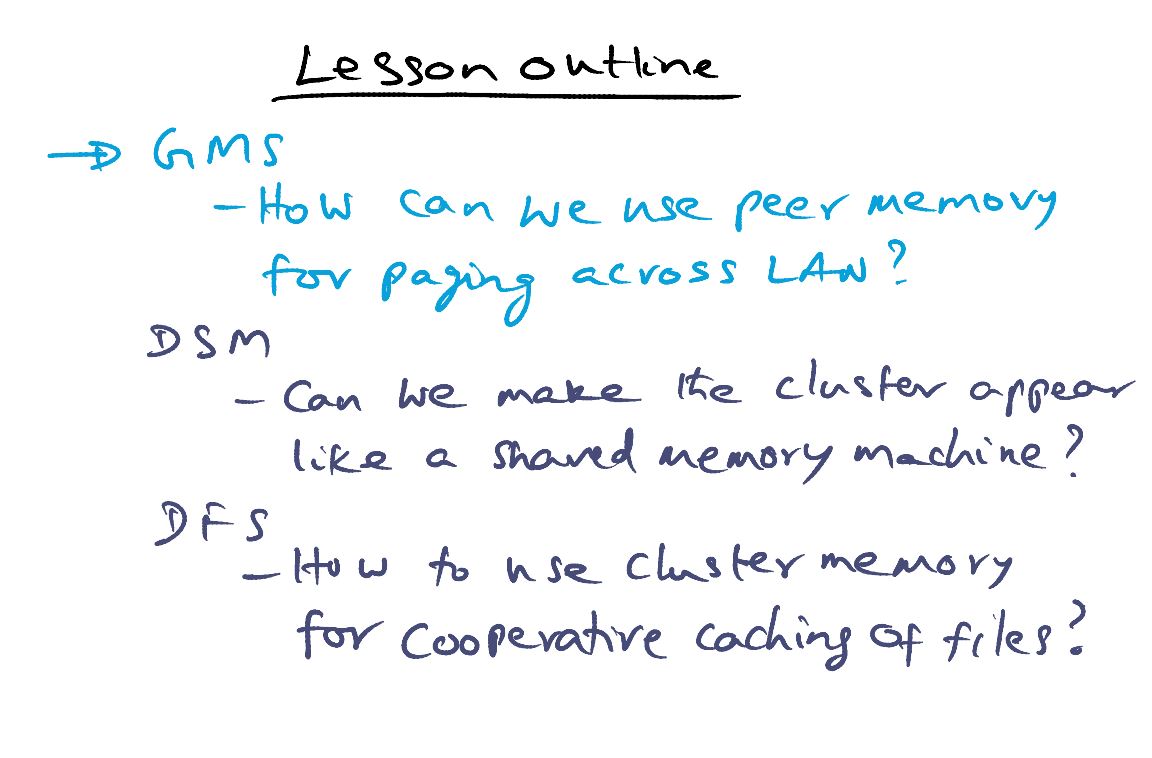 Lesson outline
→ GMS
- How can we use peer memory
for paging across LAN?
DSM
- Can we make the cluster appear
like a shared memory machine?
DFS
- How to use cluster memory
for cooperative caching of files?